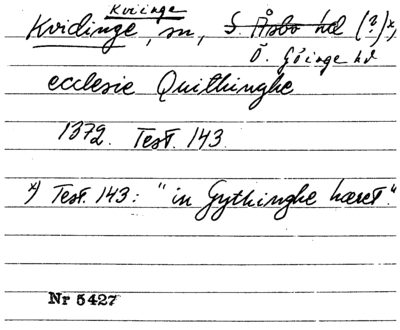 Kviinge
Kvidinge, sn, S. Åsbo hd (?)*)
Ö. Göinge hd
ecclesie Quithinghe
1372. Test. 143.
*) Test. 143: "in Gythinghe hæret".
Nr 5427